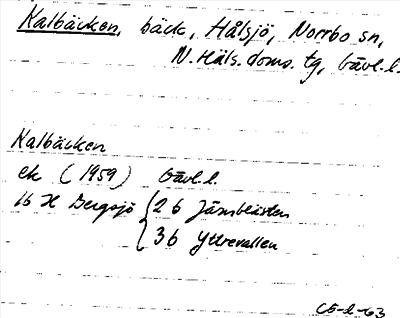 Kalbäcken, bäck, Hålsjö, Norrbo sn,
N. Häls. doms. tg, Gävl.l.
Kalbäcken
ek (1959) Gävl.l.
16 H Bergsjö 2b Järnblästen
3b Yttrevallen
CE-l-63